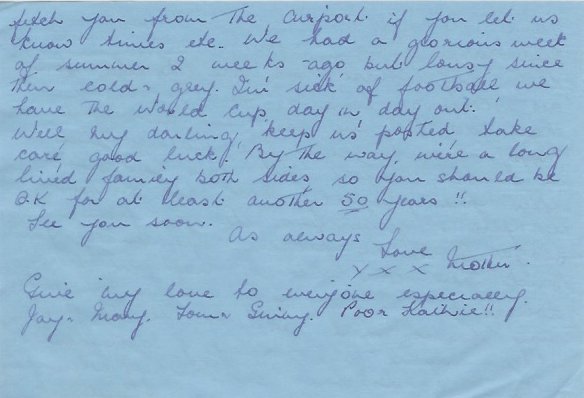 fetch you from the airport if you let us
know times etc. We had a glorious week
of summer 2 weeks ago but lousy since
then cold & grey. I'm sick of football we
have the World Cup day in, day out.
Well my darling, keep us posted take
care good luck. By the way, we're a long
lived family both sides, so you should be
OK for at least another 50 years !!
See you soon.
As always
Love
x x x Mother.
Give my love to everyone especially
Jay & Mary. Tom & Ginny. Poor Kathie!!